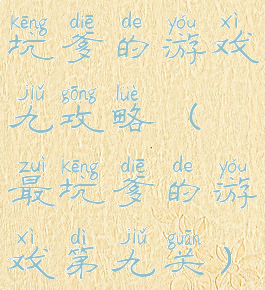 kēng diē de yóu xì
坑爹的游戏
jiǔ gōng luè
九攻略（
zuì kēng diē de yóu
最坑爹的游
xì dì jiǔ guān
戏第九关）